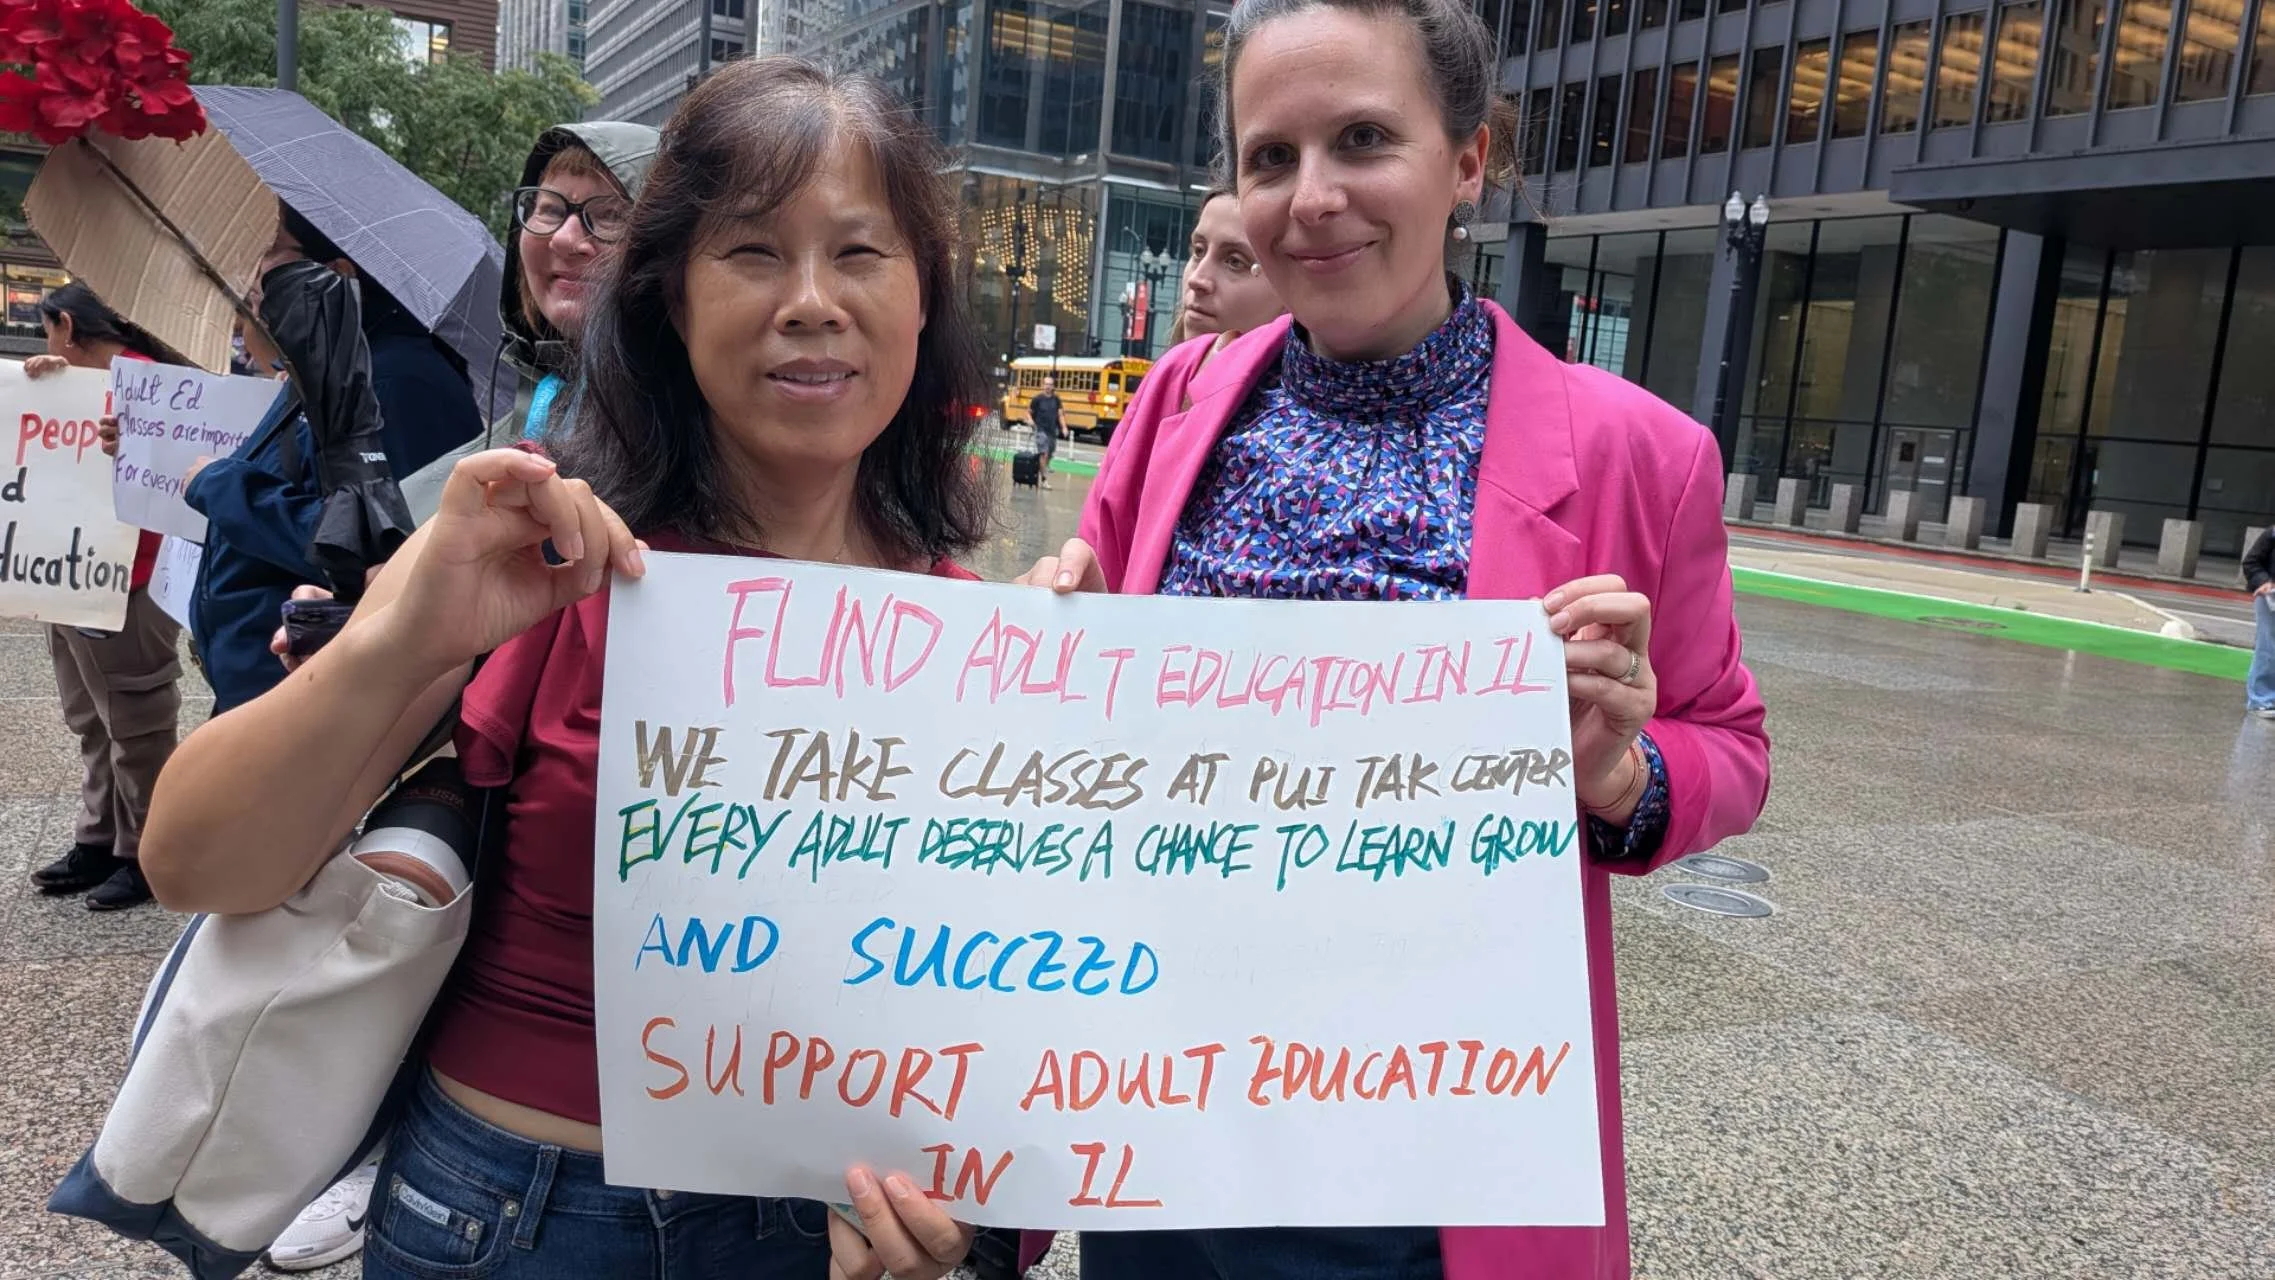 Adult Ed
Classes are
For
peop
d
ducation
FUND ADULT EDUCATION IN IL
WE TAKE CLASSES AT PUI TAK CENTER
EVERY ADULT DESERVES A CHANCE TO LEARN GROW
AND SUCCEED
SUPPORT ADULT EDUCATION
IN IL
Calvin Klein